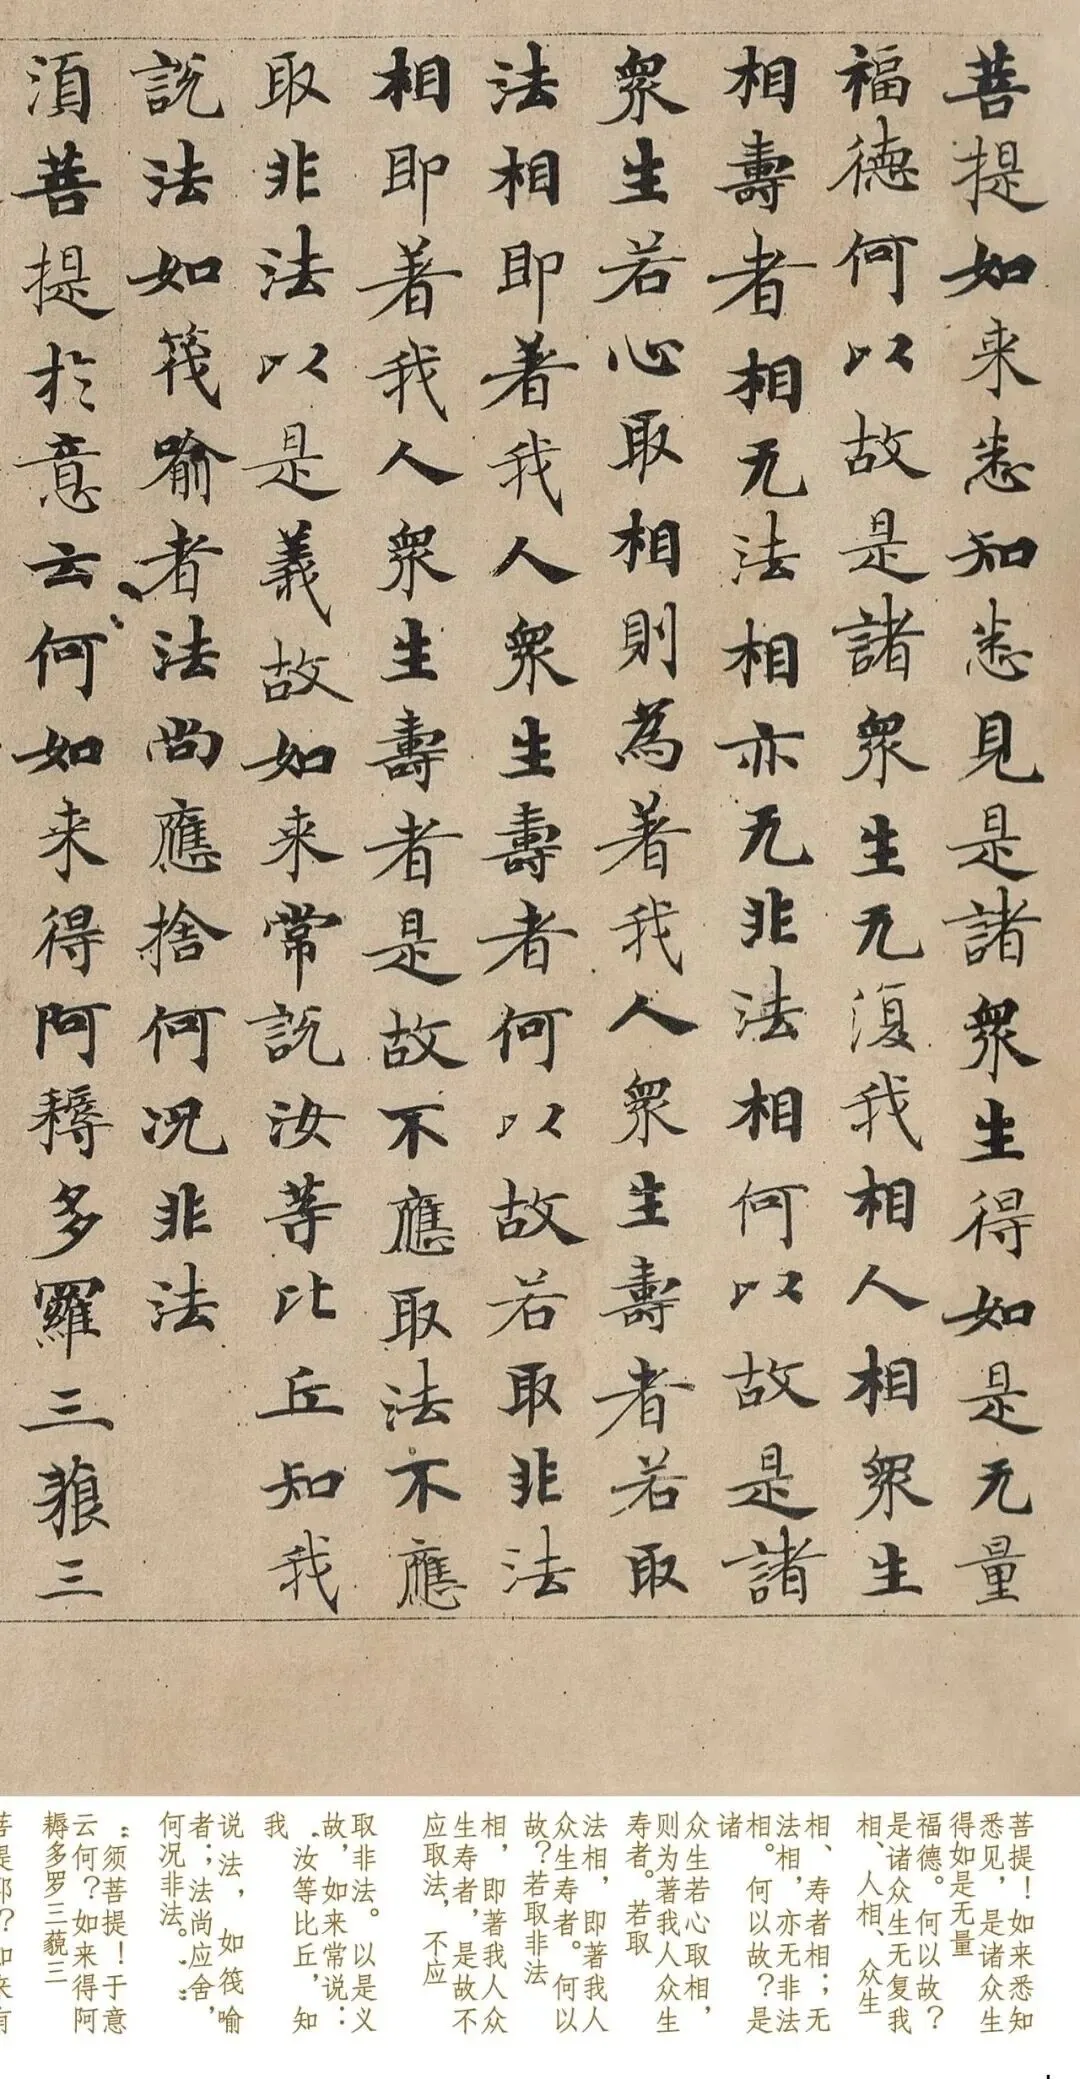 菩提如来悉知悉見是諸衆生得如是无量
福德何以故是諸衆生无復我相人相衆生
相壽者相无法相亦无非法相何以故是諸
衆生若心取相則為著我人衆生壽者若取
法相即著我人衆生壽者何以故若取非法
相即著我人衆生壽者是故不應取法不應
取非法以是義故如来常説汝等比丘知我
説法如筏喻者法尚應捨何况非法
湏菩提於意云何如来得阿耨多羅三藐三
菩提！如来悉知
悉见，是诸众生
得如是无量
福德。何以故？
是诸众生无复我
相、人相、众生
相、寿者相；无
法相，亦无非法
相。何以故？是
诸
众生若心取相，
则为著我人众生
寿者。若取
法相，即著我人
众生寿者。何以
故？若取非法
相，即著我人众
生寿者，是故不
应取法，不应
取非法。以是义
故，如来常说：
“汝等比丘，知
我
说法，如筏喻
者；法尚应舍，
何况非法。”
“须菩提！于意
云何？如来得阿
耨多罗三藐三